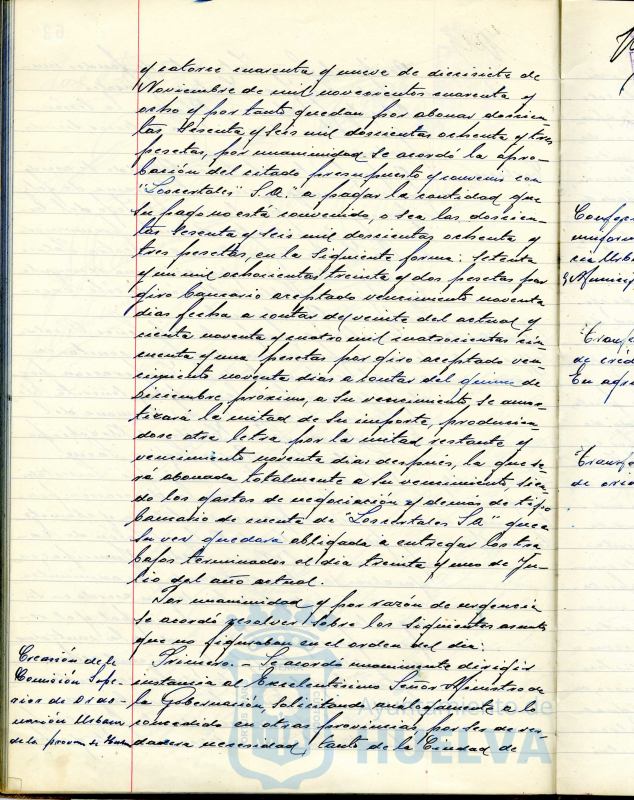 y catorce cuarenta y nueve de diecisiete de
Noviembre de mil novecientos cuarenta y
ocho y por tanto quedan por abonar doscien-
tas, sesenta y seis mil doscientas ochenta y tres
pesetas, por unanimidad se acordó la apro-
bación del citado presupuesto y convenir con
"Loscertales" S.A. a pagar la cantidad que
su pago no está convenido, o sea las doscien-
tas sesenta y seis mil doscientas ochenta y
tres pesetas, en la siguiente forma: Setenta
y un mil ochocientas treinta y dos pesetas por
giro bancario aceptado vencimiento noventa
dias fecha a contar del veinte del actual y
cienta noventa y cuatro mil cuatrocientas cin-
cuenta y una pesetas por giro aceptado ven-
cimiento noventa dias a contar del quince de
Diciembre próximo, a su vencimiento se amor-
tizará la mitad de su importe, producien-
dose otra letra por la mitad restante y
vencimiento noventa dias después, la que se-
rá abonada totalmente a su vencimiento, sien-
do los gastos de negociación y demás de tipo
bancario de cuenta de "Loscertales S.A" que a
su vez quedará obligada a entregar los tra-
bajos terminados el dia treinta y uno de Ju-
lio del año actual.
Por unanimidad y por razón de urgencia
se acordó resolver sobre los siguientes asuntos
que no figuraban en el orden del dia:
Primero. - Se acordó unanimemente dirigir
instancia al Excelentisimo Señor Ministro de
la Gobernación, solicitando, analogamente a lo
concedido en otras provincias, por ser de ver-
dadera necesidad, tanto de la Ciudad de
Creación de la
Comisión Supe-
rior de Orde-
nación Urbana
de la provin de Huelva
Confec
uniform
cia Urba
y Municip
Transf
de créd
En agri
Transf
de cré
Ayuntamiento de
HUELVA